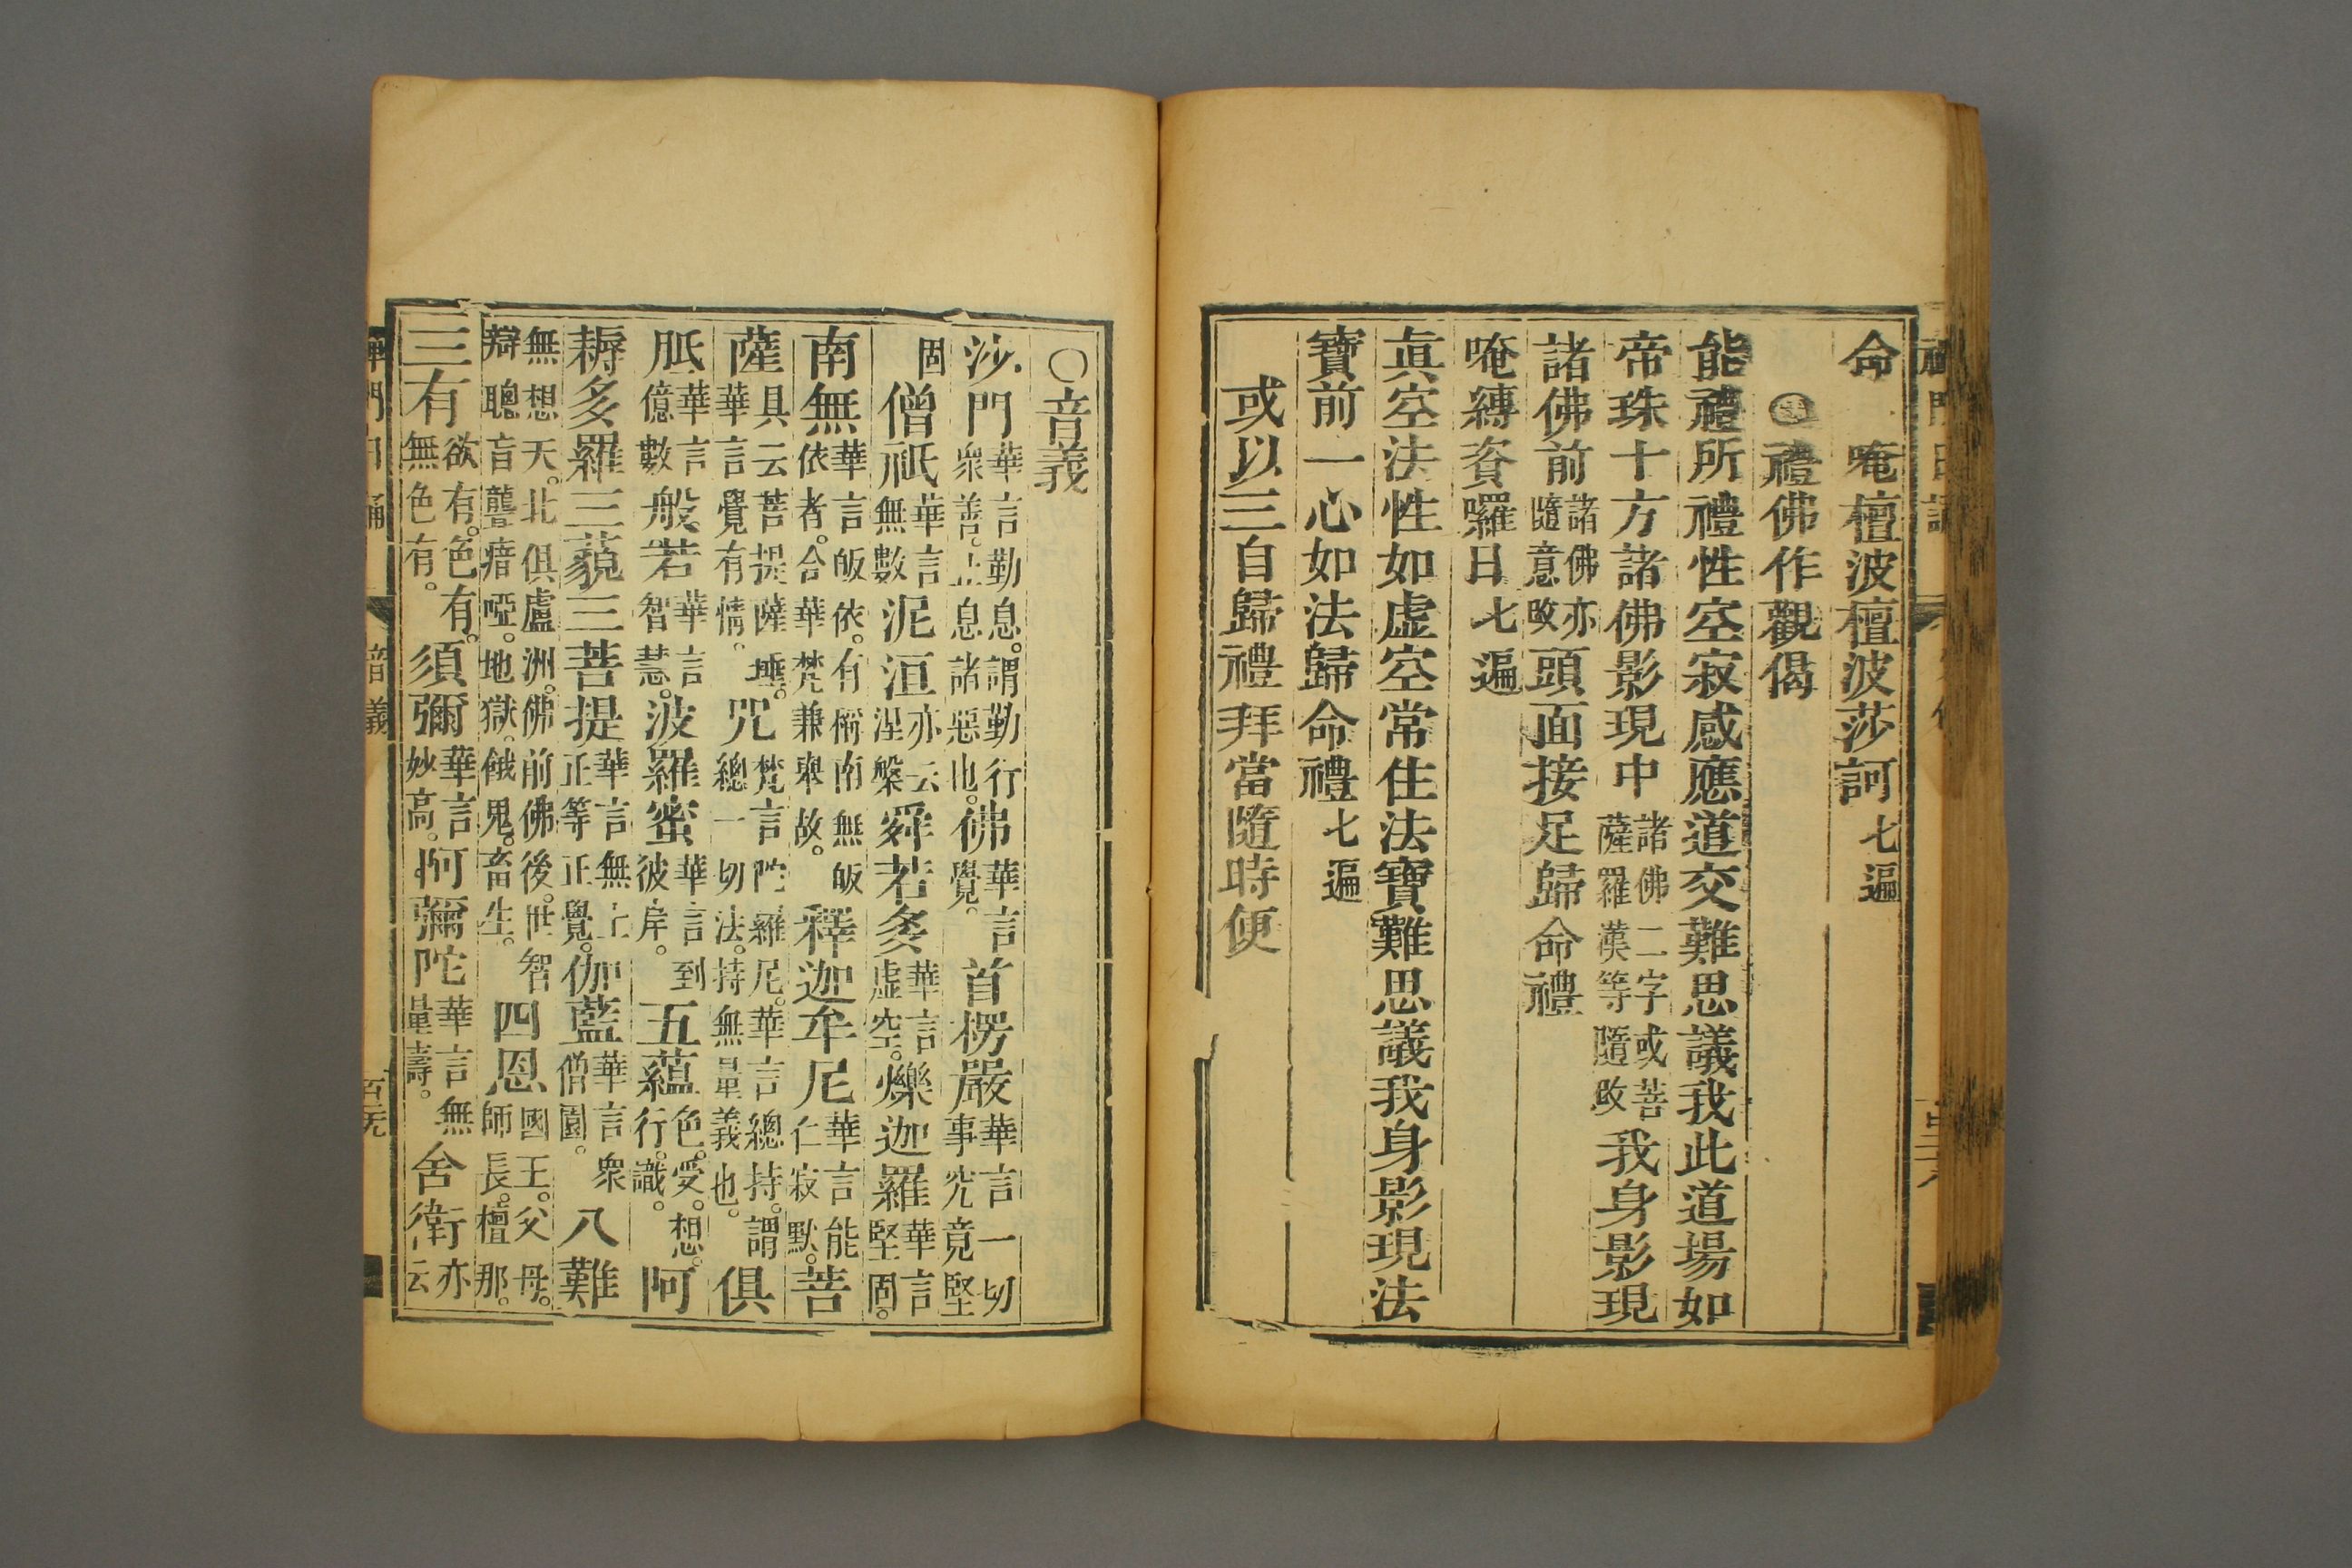 命　唵檀波檀波莎訶七遍
禮佛作觀偈
能禮所禮性空寂感應道交難思議我此道場如
帝珠十方諸佛影現中諸佛二字或菩薩羅漢等隨改我身影現
諸佛前諸佛亦隨意改頭面接足歸命禮
唵縛資囉日七遍
眞空法性如虛空常住法寶難思議我身影現法
寶前一心如法歸命禮七遍
或以三自歸禮拜當隨時便
〇音義
沙門華言勤息。謂勤行衆善。止息諸惡也。佛華言覺。首楞嚴華言一切事究竟堅
固僧祇華言無數泥洹亦云涅槃舜若多華言虛空。爍迦羅華言堅固。
南無華言皈依。有稱南無皈依者。合華梵兼舉故。釋迦牟尼華言能仁寂默。菩
薩具云菩提薩埵。華言覺有情。咒梵言陀羅尼。華言總持。謂總一切法。持無量義也。俱
胝華言億數般若華言智慧。波羅蜜華言到彼岸。五蘊色。受。想。行。識。阿
耨多羅三藐三菩提華言無上正等正覺。伽藍華言衆僧園。八難
無想天。北俱盧洲。佛前佛後。世智辯聰。盲聾瘖啞。地獄。餓鬼。畜生。四恩國王。父母。師長。檀那。
三有欲有。色有。無色有。須彌華言妙高。阿彌陀華言無量壽。舍衛亦云
禪門日誦　音義